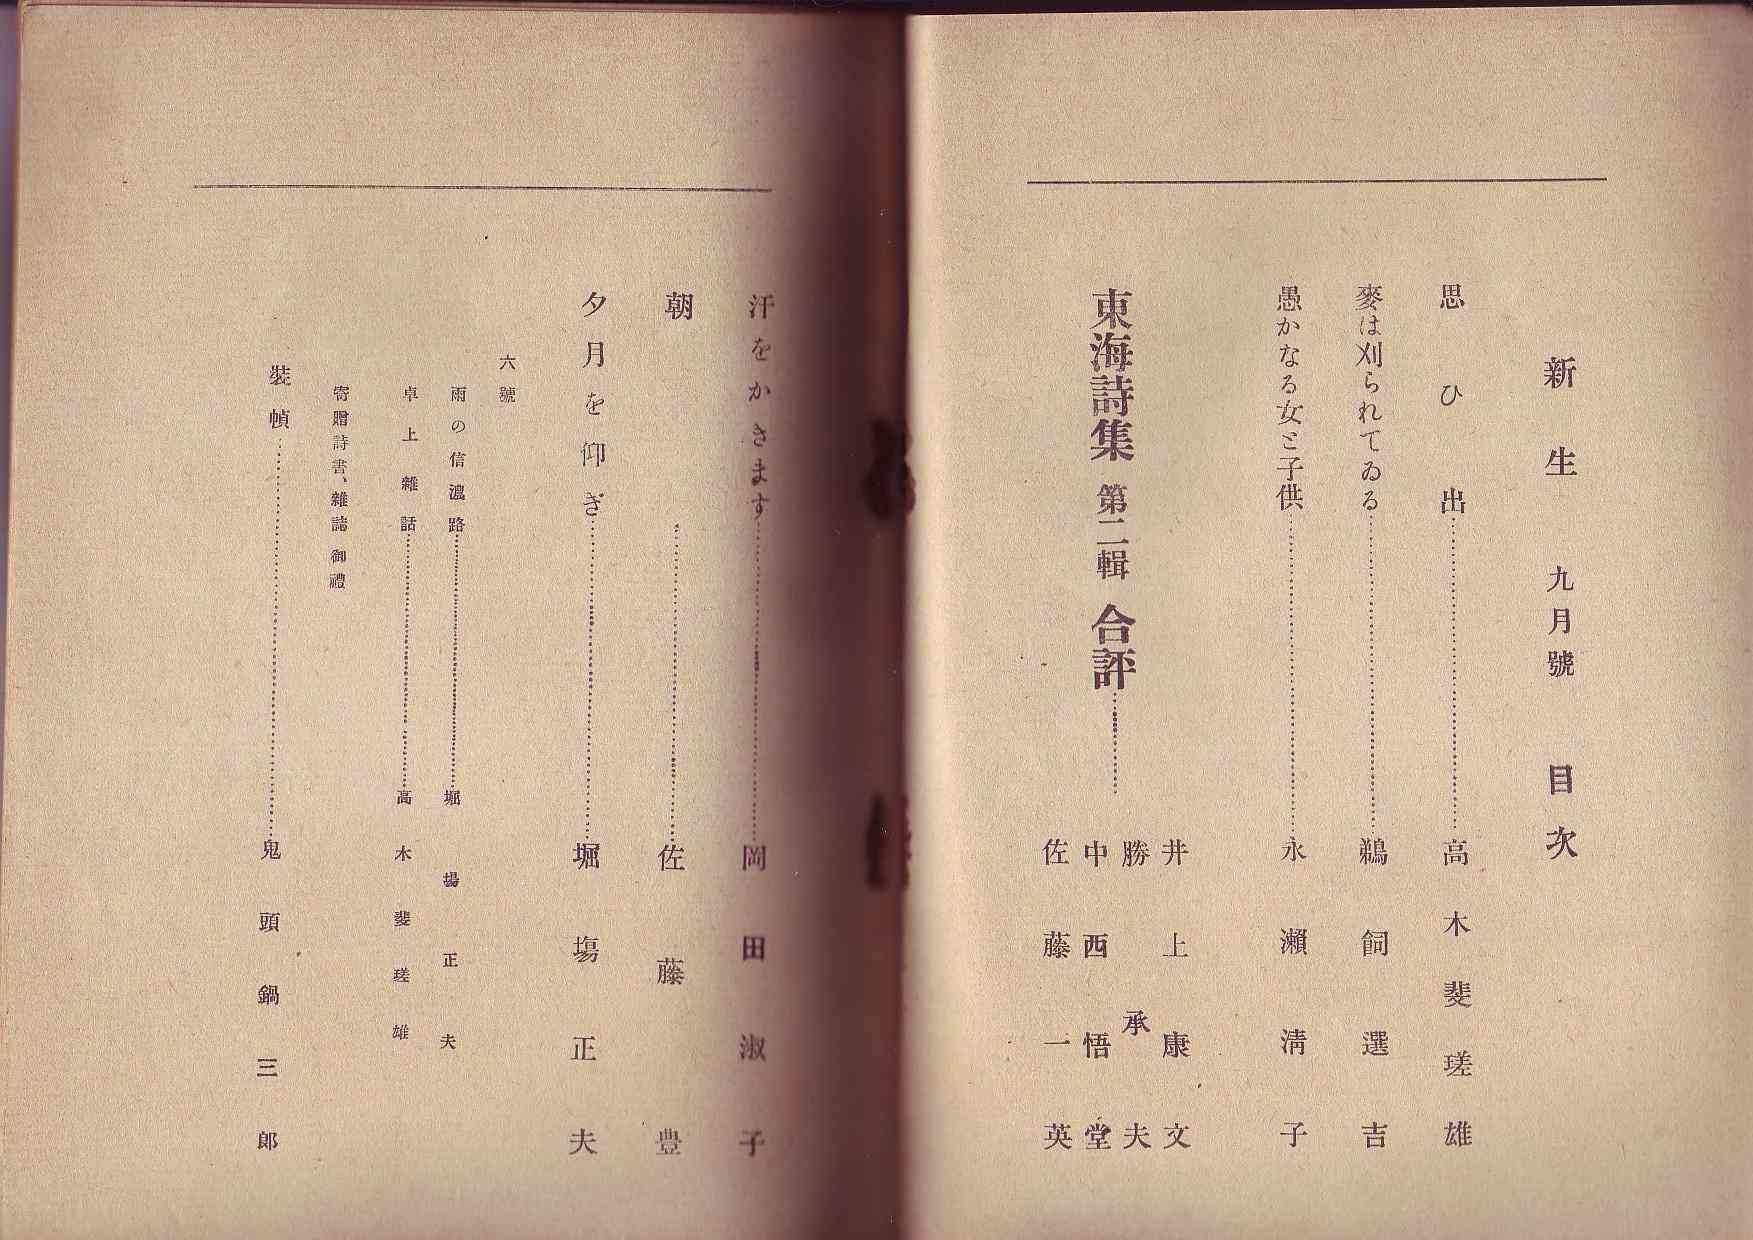 新生 九月號 目次
思ひ出……高木斐瑳雄
麥は刈られてゐる……鵜飼選吉
愚かなる女と子供……永瀨淸子
東海詩集 第二輯 合評……
井上康文
勝承夫
中西悟堂
佐藤一英
汗をかきます……岡田淑子
朝……佐藤豊
夕月を仰ぎ……堀塲正夫
六號
雨の信濃路……堀塲正夫
卓上雜話……高木斐瑳雄
寄贈詩書、雜誌御禮
裝幀……鬼頭鍋三郎